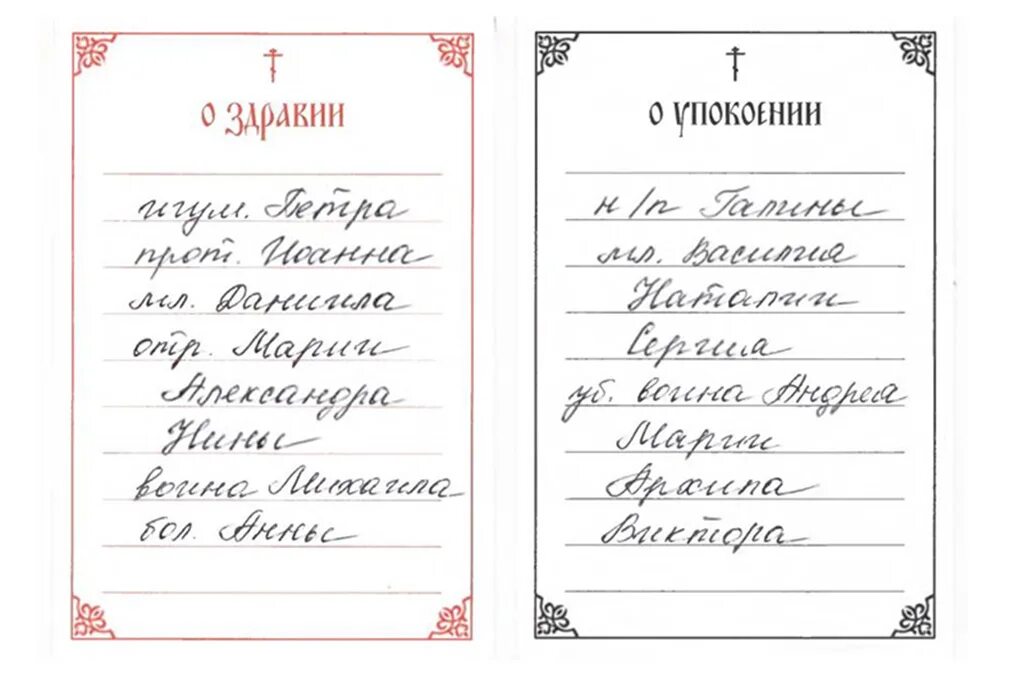 о здравии
игум. Петра
прот. Иоанна
мл. Даниила
отр. Марии
Александра
Нины
воина Михаила
бол. Анны
о упокоении
н/п Галины
мл. Василия
Наталии
Сергия
уб. воина Андрея
Марии
Архипа
Виктора